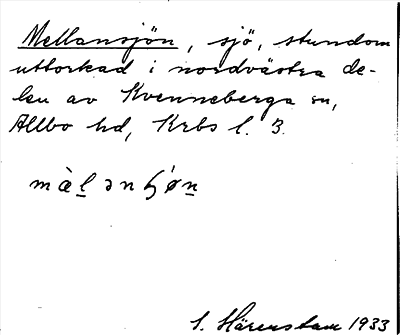 Mellansjön, sjö, stundom
uttorkad i nordvästra de-
len av Kvenneberga sn,
Allbo hd, Krbs l. 3.
màl̲ənɧ́øn̲
S. Härenstam 1933